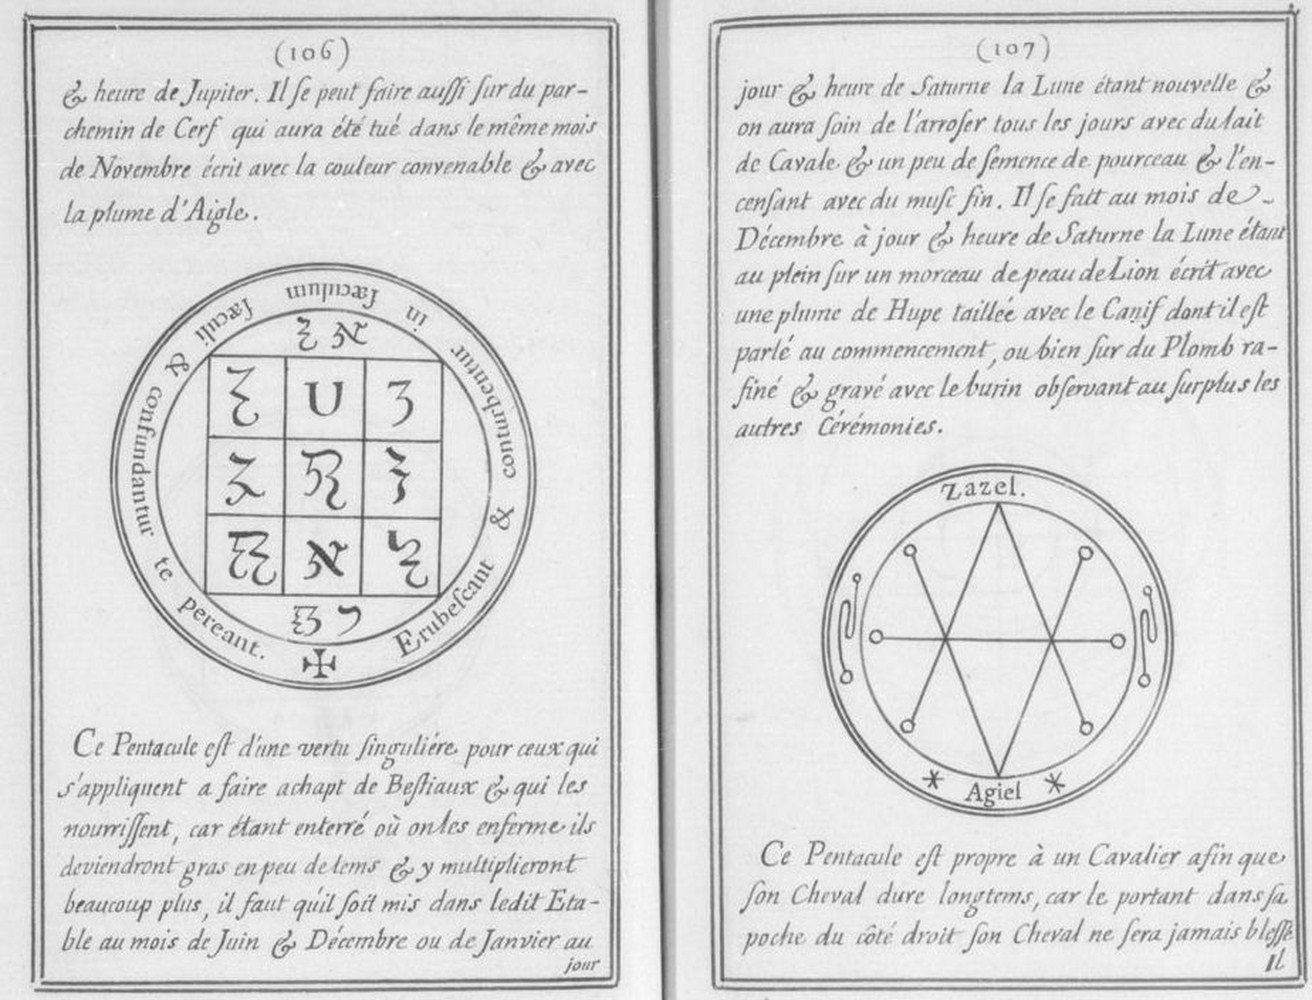 (106)
& heure de Jupiter. Il ſe peut faire auſſi ſur du par-
chemin de Cerf qui aura été tué dans le même mois
de Novembre écrit avec la couleur convenable & avec
la plume d'Aigle.
Erubeſcant & conturbentur in ſæculum ſæculi & confundantur te pereant.
U
Ce Pentacule eſt d'une vertu ſinguliére pour ceux qui
s'appliquent a faire achapt de Beſtiaux & qui les
nourriſſent, car étant enterré où on les enferme ils
deviendront gras en peu de tems & y multiplieront
beaucoup plus, il faut qu'il ſoit mis dans ledit Eta-
ble au mois de Juin & Décembre ou de Janvier au
jour
(107)
jour & heure de Saturne la Lune étant nouvelle &
on aura ſoin de l'arroſer tous les jours avec du lait
de Cavale & un peu de ſemence de pourceau & l'en-
cenſant avec du muſc fin. Il ſe fait au mois de
Décembre à jour & heure de Saturne la Lune étant
au plein ſur un morceau de peau de Lion écrit avec
une plume de Hupe taillée avec le Canif dont il eſt
parlé au commencement, ou bien ſur du Plomb ra-
finé & gravé avec le burin obſervant au ſurplus les
autres Cérémonies.
Zazel.
* Agiel *
Ce Pentacule eſt propre à un Cavalier afin que
ſon Cheval dure longtems, car le portant dans ſa
poche du côté droit ſon Cheval ne ſera jamais bleſſé
Il